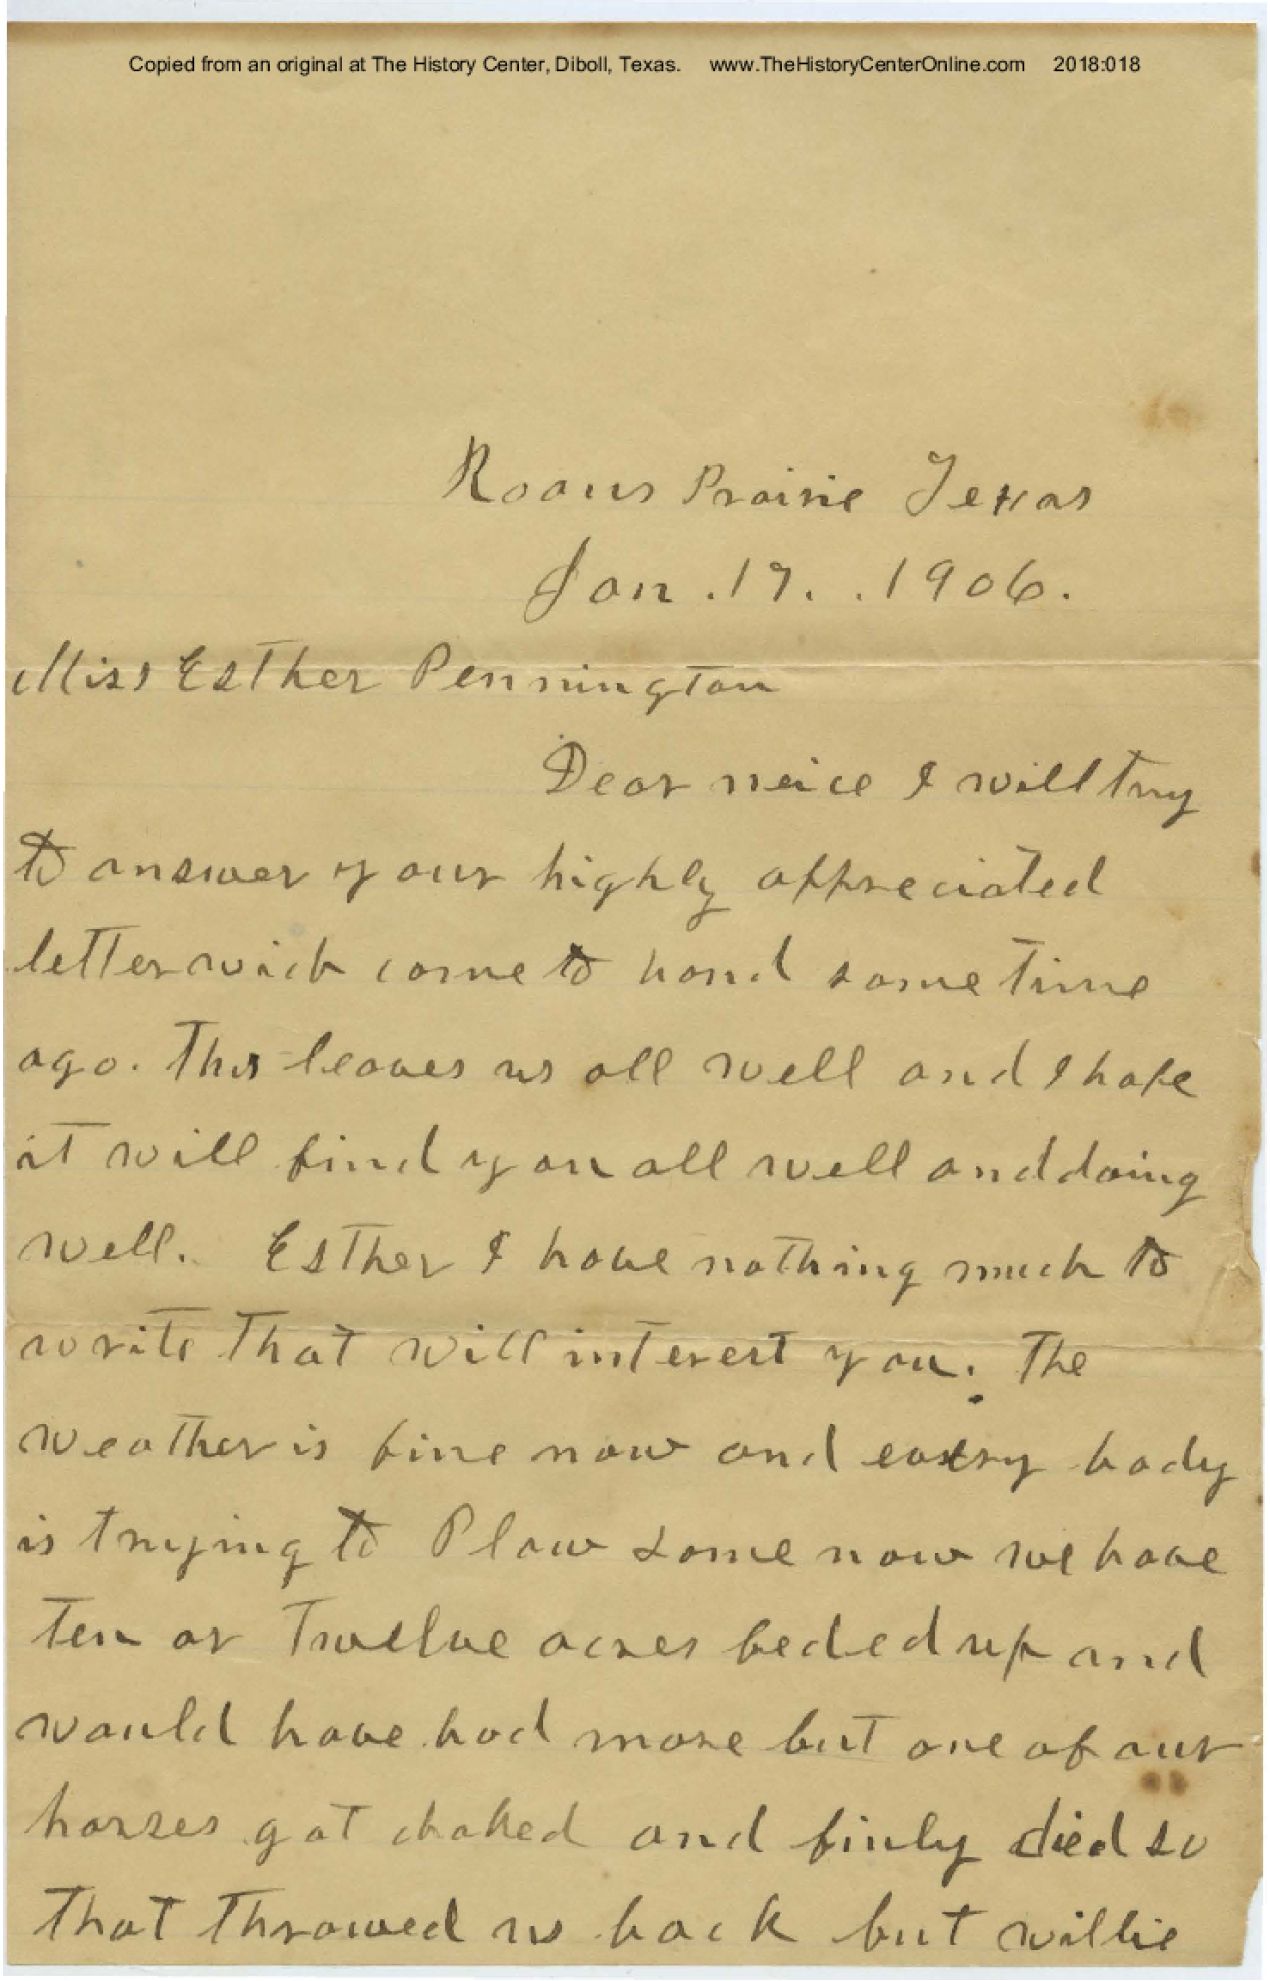 Copied from an original at The History Center, Diboll, Texas. www.TheHistoryCenterOnline.com 2018:018
Roans Prairie Texas
Jan. 17. . 1906.
Miss Esther Pennington
Dear neice I will try
to answer your highly appreciated
letter wich come to hand some time
ago. This leaves us all well and I hope
it will find you all well and doing
well. Esther I have nothing much to
write that will interest you. The
weather is fine now and body
is trying to Plow some now we have
ten or Twelve acres beded up and
would have had more but one of our
horses got choked and finly died so
that throwed us back but willie